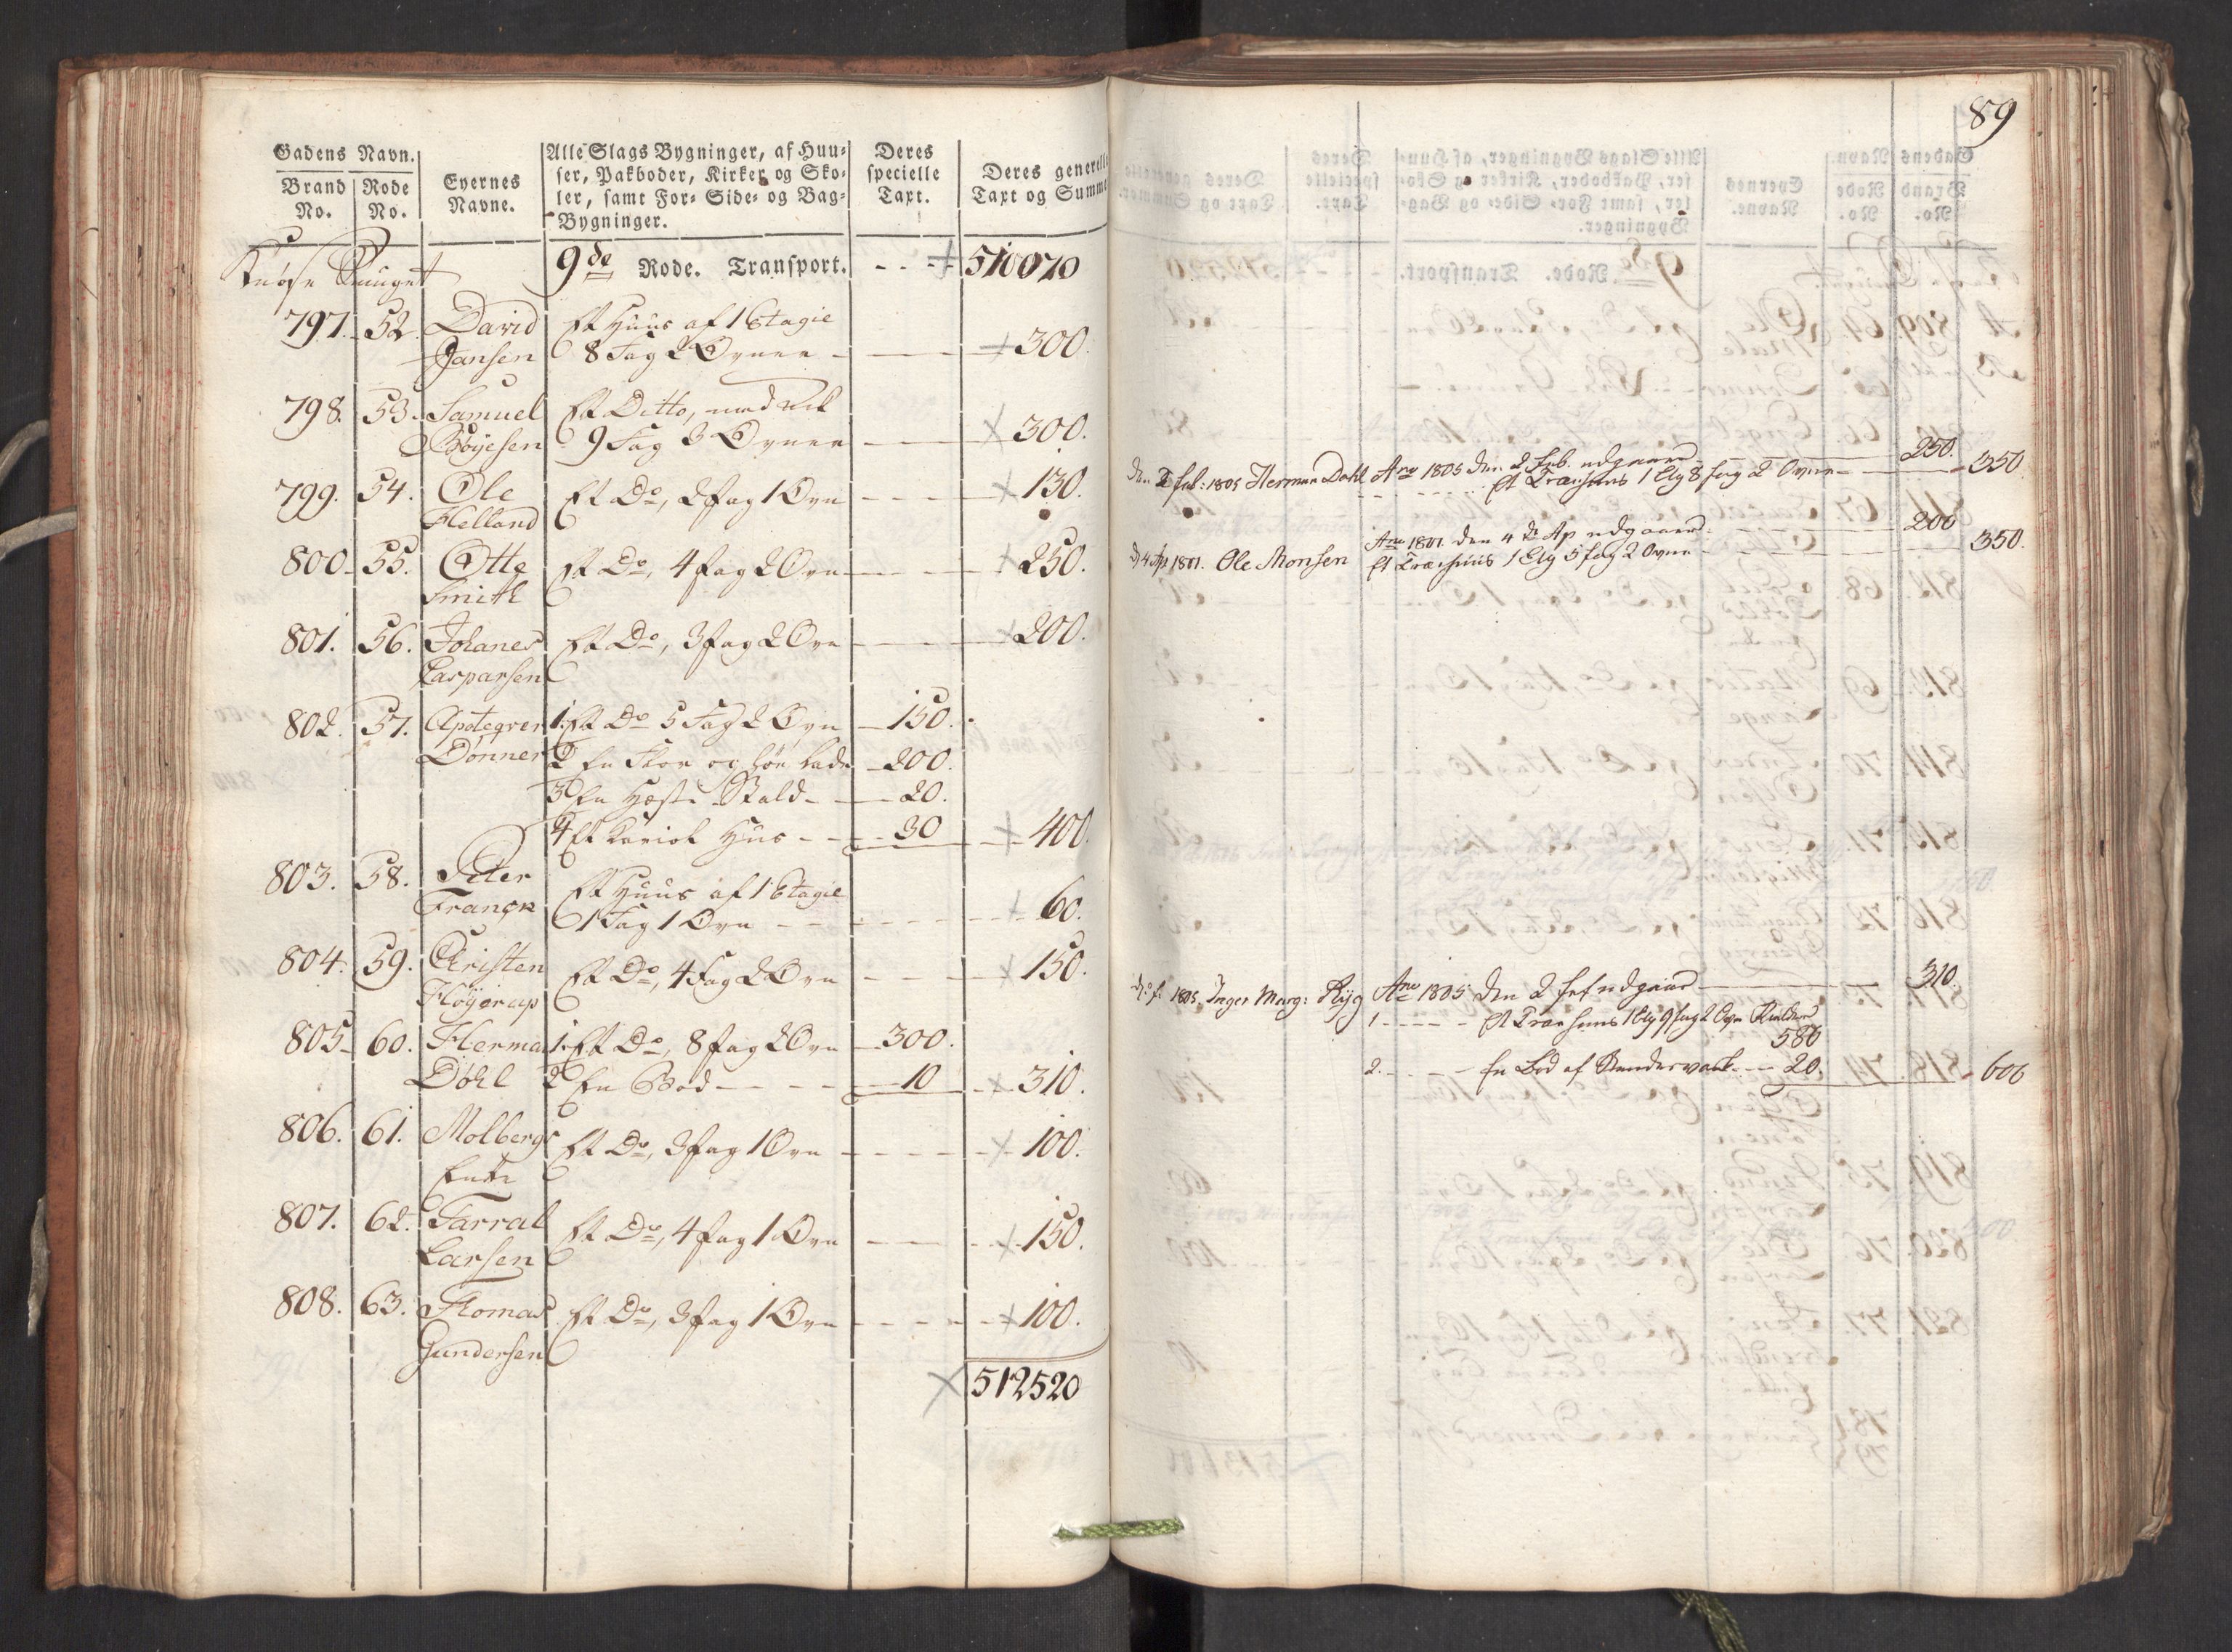 Gadens Navn.
Brand No.
Rode No.
Eyernes Navne.
Alle Slags Bygninger, af Huu-
ser, Pakboder, Kirker og Sko-
ler, samt For- Side- og Bag-
Bygninger.
Deres specielle Taxt.
Deres generelle Taxt og Summe
9de Rode. Transport. - - 510070
797. 52. David Et Huus af 1 Etagie
Jansen 8 Fag 2 Ovner - 300.
798. 53. Samuel Et Ditto, med
Böyesen 9 Fag 3 Ovner 300.
799. 54. Ole Et Do, 2 Fag 1 Ovn - - - 130.
Helland
800. 55. Otte Et Do, 4 Fag 2 Ovn 250.
Smith
801. 56. Johanes Et Do, 3 Fag 2 Ovn 200.
Casparsen
802. 57. Apoteqver 1. Et Do 5 Fag 2 Ovn - 150.
Dønner 2 En Floe og Höe Lade - 200.
3 En Heste Stald - 20.
4 Et Kariol Hus - - 30 400.
803. 58. Peter Et Huus af 1 Etagie
Franck 1 Fag 1 Ovn - - 60.
804. 59. Christen Et Do, 4 Fag 2 Ovn - - - 150.
Höyerup
805. 60. Herma 1. Et Do, 8 Fag 2 Ovn - 300.
Döhl 2 En Bod - - - 10 310.
806. 61. Molbergs Et Do, 3 Fag 1 Ovn - - - - 100.
Enke
807. 62. Tarral Et Do, 4 Fag 1 Ovn - - 150.
Larsen
808. 63. Thomas Et Do, 3 Fag 1 Ovn - - - - 100.
Gundersen
512520
89
Den 2 feb: 1805 Herman Dahl Ano 1805 den 2 Feb. udgaaer 250.
Et Træehuus 1 Etg 8 fag 2 Ovne - 350
d 4 Ap 1801. Ole Monsen Ano 1801 den 4de Ap udgaaer 200
Et Træehuus 1 Etg 5 fag 2 Ovne 350.
1805. Inger Marg: Ryg Ano 1805 den 2 udgaaer 310.
1 - - - - Et Træehuus 1 Etg 9 fag 2 Ovn
580
2. - - - - En Bod af - - 20. 600